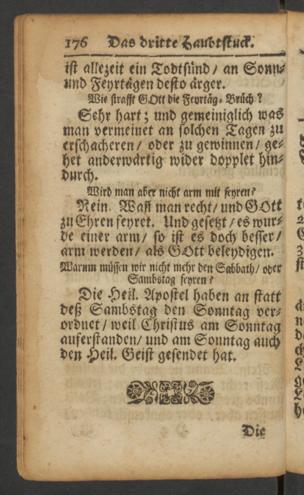 176 Das dritte Haubtstuck.
ist allezeit ein Todtsünd / an Sonn-
und Feyrtägen desto ärger.
Wie strafft GOtt die Feyrtäg-Brüch?
Sehr hart; und gemeiniglich was
man vermeinet an solchen Tagen zu
erschacheren / oder zu gewinnen / ge-
het anderwärtig wider dopplet hin-
durch.
Wird man aber nicht arm mit feyren?
Nein. Wañ man recht / und GOtt
zu Ehren feyret. Und gesetzt / es wur-
de einer arm / so ist es doch besser /
arm werden / als GOtt beleydigen.
Warum müssen wir nicht mehr den Sabbath / oder
Sambstag feyren?
Die Heil. Apostel haben an statt
deß Sambstag den Sonntag ver-
ordnet / weil Christus am Sonntag
auferstanden / und am Sonntag auch
den Heil. Geist gesendet hat.
Die